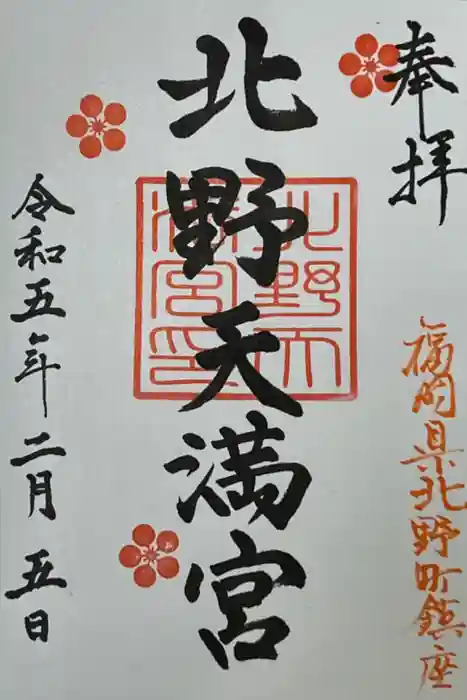 奉拝
福岡県北野町鎮座
北野天満宮
北野天満宮印
令和五年二月五日